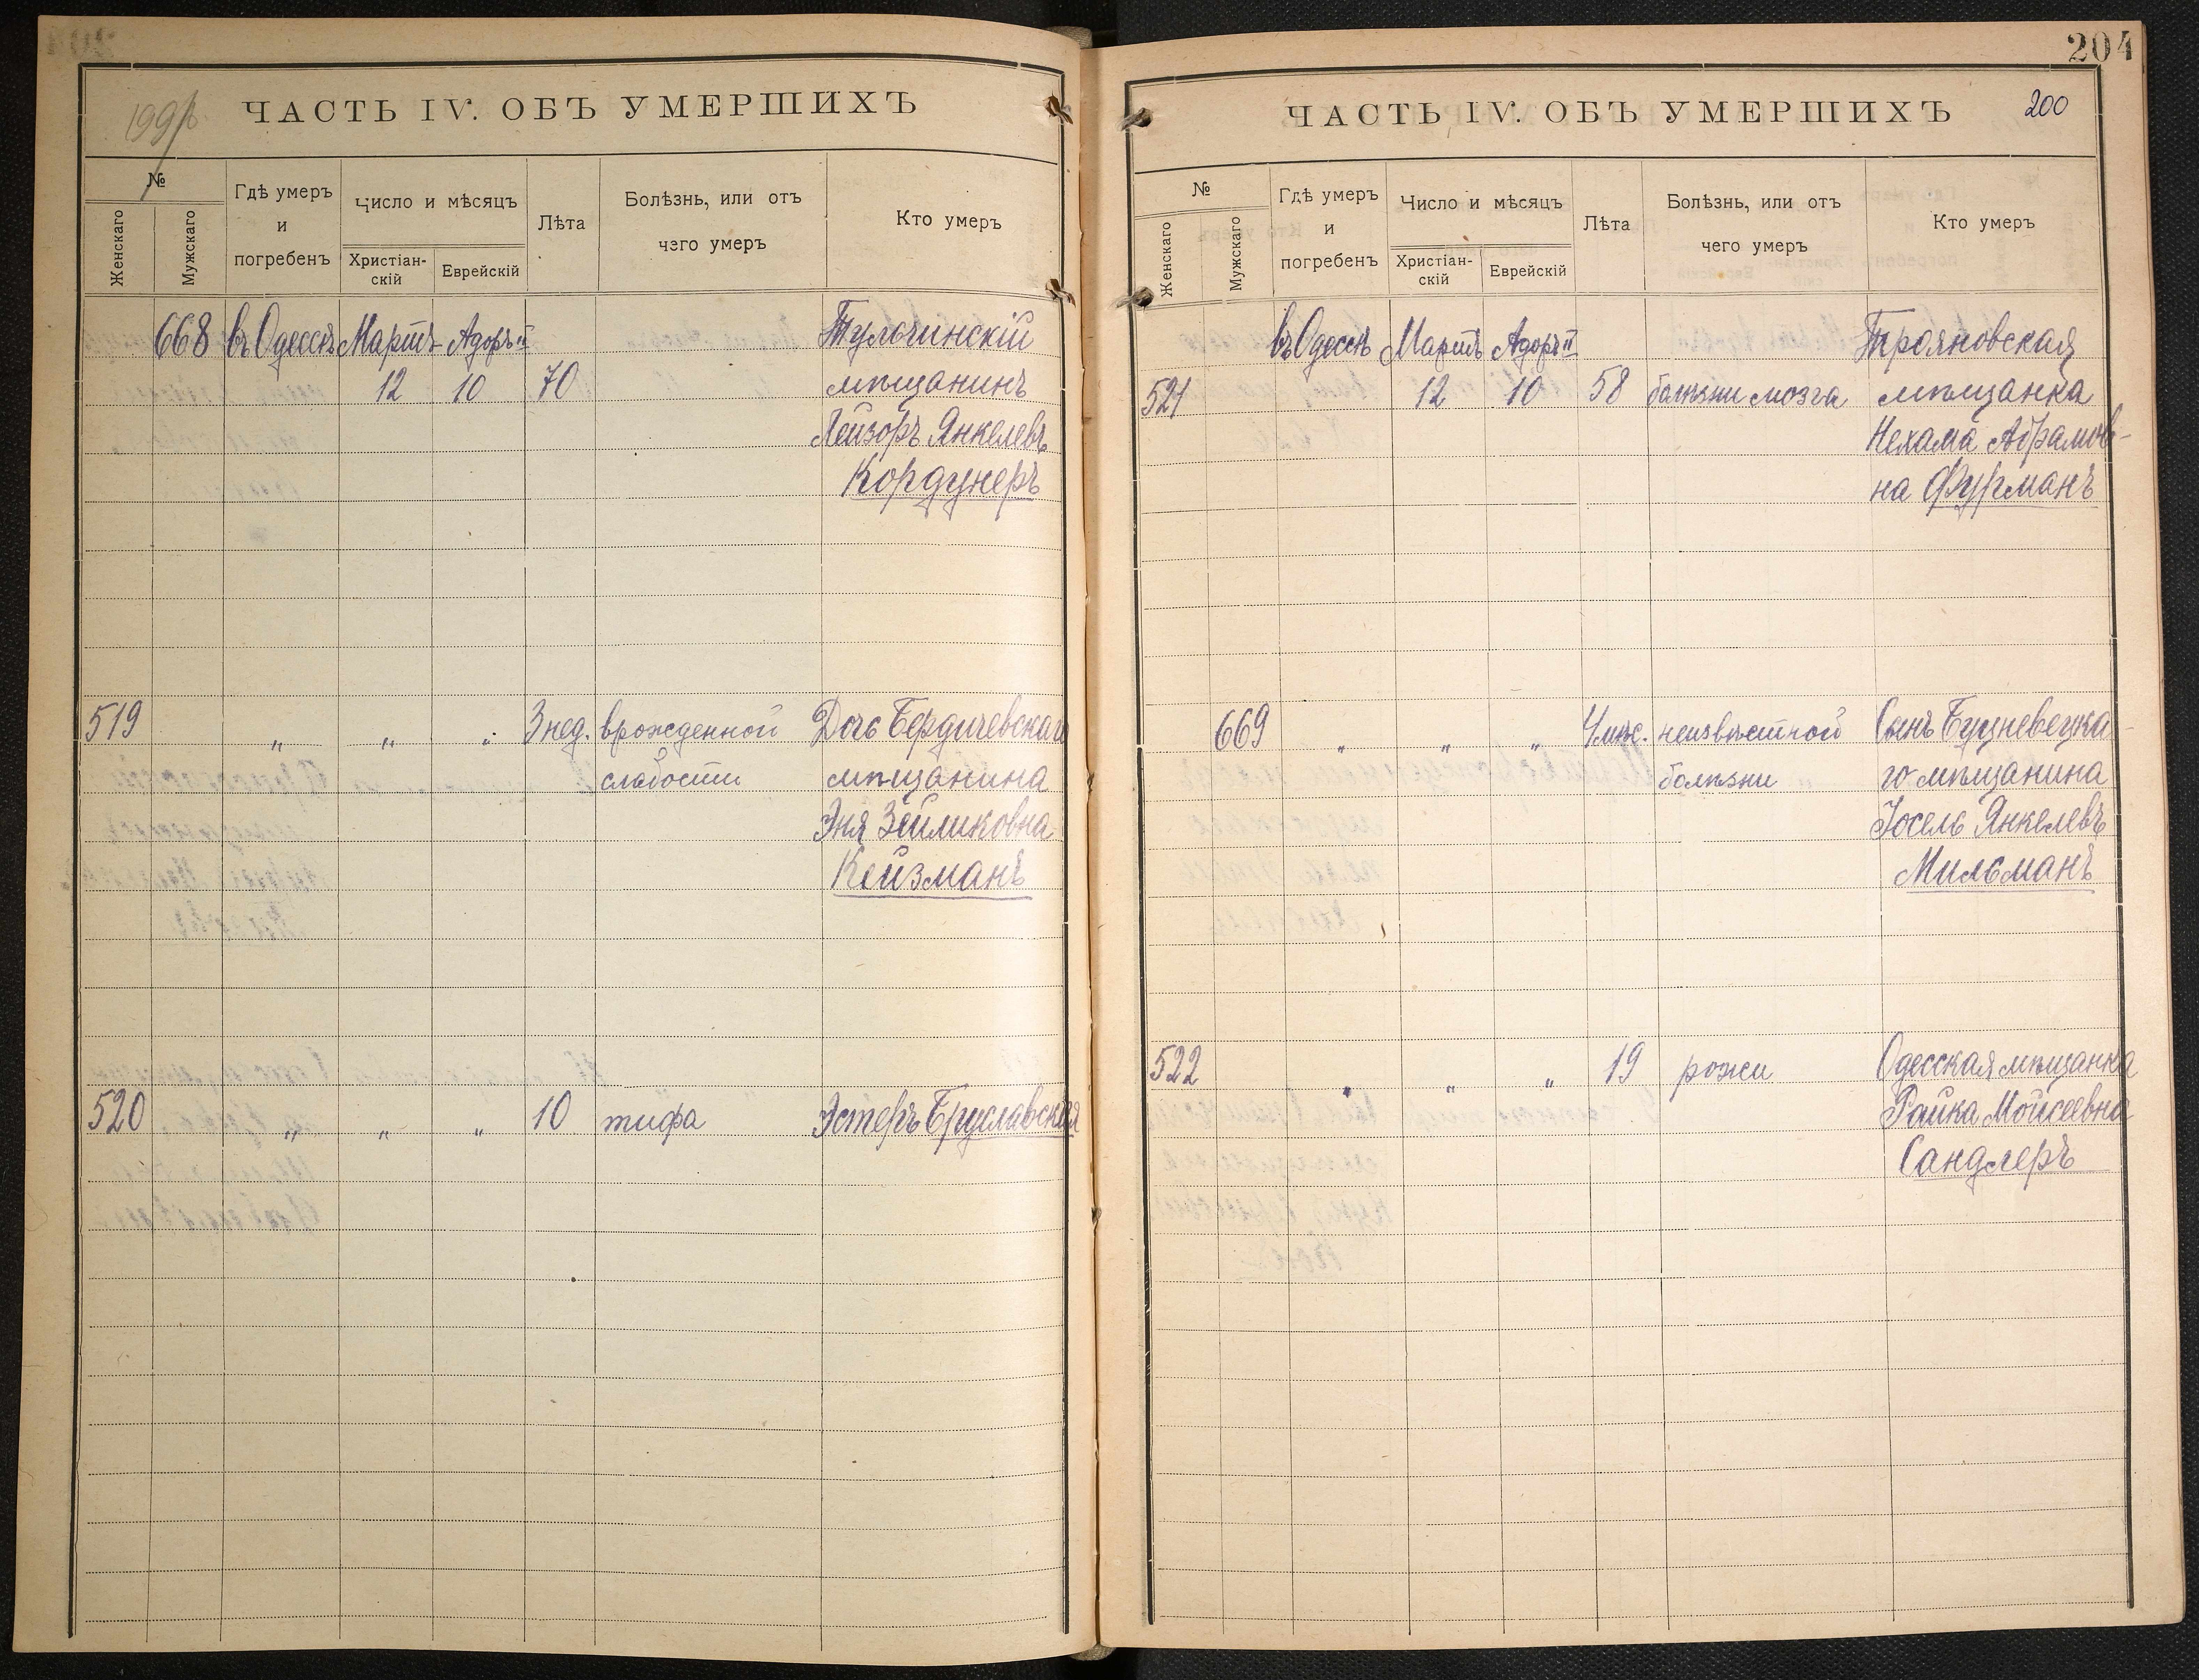 199/б
ЧАСТЬ IV. ОБЪ УМЕРШИХЪ
№
Женскаго
Мужскаго
Гдѣ умеръ
и
погребенъ
Число и мѣсяцъ
Христіан-
скій
Еврейскій
Лѣта
Болѣзнь, или отъ
чего умеръ
Кто умеръ
668 въ Одессѣ Мартъ Адоръ II Тульчинскій
12 10 70 мѣщанинъ
Лейзоръ Янкелевъ
Кордунеръ
519 " " " 3 нед. врожденной Дочь Бердичевскаго
слабости мѣщанина
Эня Зейликовна
Кейзманъ
520 " " " 10 тифа Эстеръ Бруславская
204
ЧАСТЬ IV. ОБЪ УМЕРШИХЪ
200
№
Женскаго
Мужскаго
Гдѣ умеръ
и
погребенъ
Число и мѣсяцъ
Христіан-
скій
Еврейскій
Лѣта
Болѣзнь, или отъ
чего умеръ
Кто умеръ
въ Одессѣ Мартъ Адоръ II Трояновская
521 12 10 58 болѣзни мозга мѣщанка
Нехама Абрамов-
на Фурманъ
669 " " " 4 мѣс. неизвѣстной Сынъ Буцневецка-
болѣзни го мѣщанина
Іосель Янкелевъ
Мильманъ
522 " " " 19 рожи Одесская мѣщанка
Райка Мойсеевна
Сандлеръ